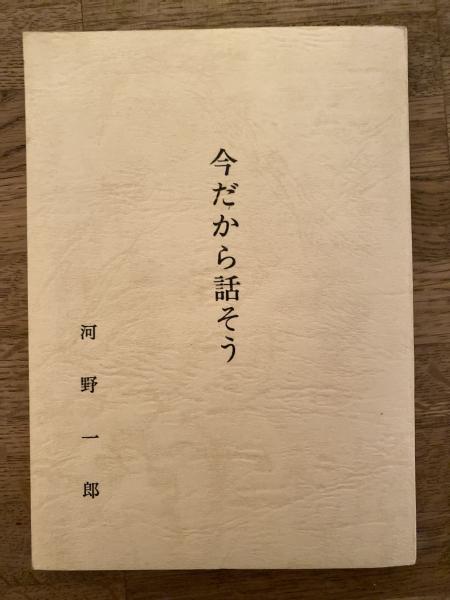 今だから話そう
河野一郎